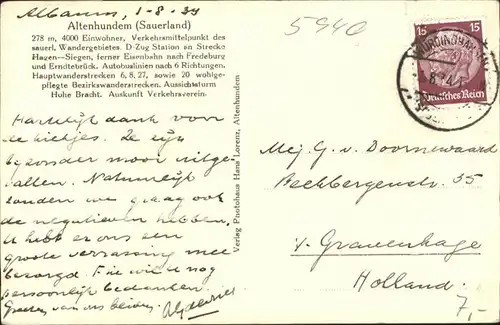 Albaum, 1-8-39
5940
Altenhundem (Sauerland)
278 m, 4000 Einwohner, Verkehrsmittelpunkt des
sauerl. Wandergebietes. D-Zug Station an Strecke
Hagen—Siegen, ferner Eisenbahn nach Fredeburg
und Erndtebrück. Autobuslinien nach 6 Richtungen.
Hauptwanderstrecken 6, 8, 27, sowie 20 wohlge-
pflegte Bezirkswanderstrecken. Aussichtsturm
Hohe Bracht. Auskunft Verkehrsverein.
15 15
Deutsches Reich
Hartelijk dank voor
de kiekjes. Ze zijn
bijzonder mooi uitge-
vallen. Natuurlijk
zouden we graag ook
de negatieven hebben.
U hebt er ons een
groote verrassing mee
bezorgd. Fie wil u nog
persoonlijk bedanken.
Groeten van ons beiden.
Verlag Photohaus Hans Lorenz, Altenhundem
Mej. G. v. Doornewaard
35
's Gravenhage
Holland.
7,-